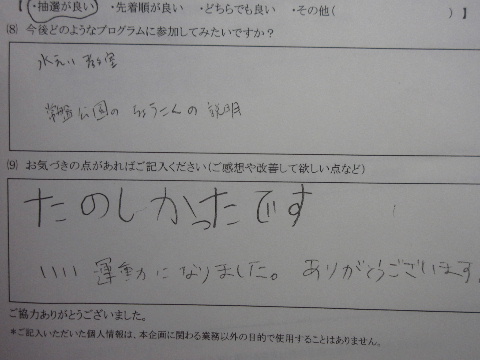 【 ・抽選が良い ・先着順が良い ・どちらでも良い ・その他( ) 】
(8) 今後どのようなプログラムに参加してみたいですか？
水えい教室
常盤公園の ちょうこくの 説明
(9) お気づきの点があればご記入ください(ご感想や改善して欲しい点など)
たのしかったです
いい 運動になりました。 ありがとうございます。
ご協力ありがとうございました。
*ご記入いただいた個人情報は、本企画に関わる業務以外の目的で使用することはありません。